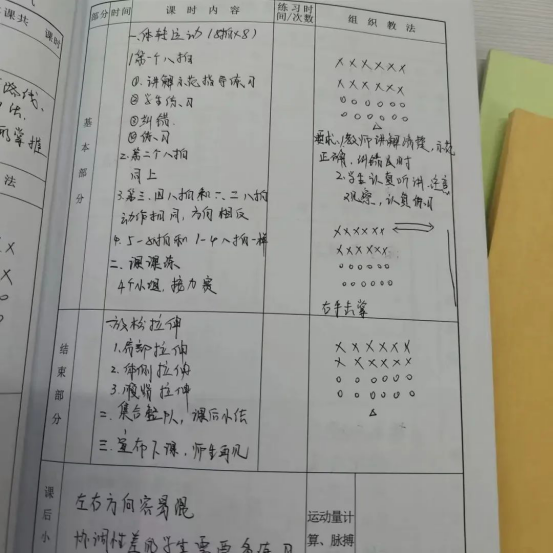 课共 课时
部分 时间 课 时 内 容 练习时间/次数 组 织 教 法
一、体转运动(8拍×8)
1.第一个八拍
①.讲解示范指导练习
②学生练习
③纠错
④练习
2.第二个八拍
同上
3.第三、四八拍和一、二八拍
动作相同,方向相反
4. 5-8拍和1-4八拍一样
二、课课练
4个小组,接力赛
基本部分
要求:1.教师讲解清楚,示范
正确,纠错及时
2.学生认真听讲,注意
观察,认真练习
右手击掌
结束部分
一放松拉伸
1.肩部拉伸
2.体侧拉伸
3.腹背拉伸
二、集合整队,课后小结
三、宣布下课,师生再见
课后小
左右方向容易混
协调性差的学生需要多练习
运动量计
算、脉搏